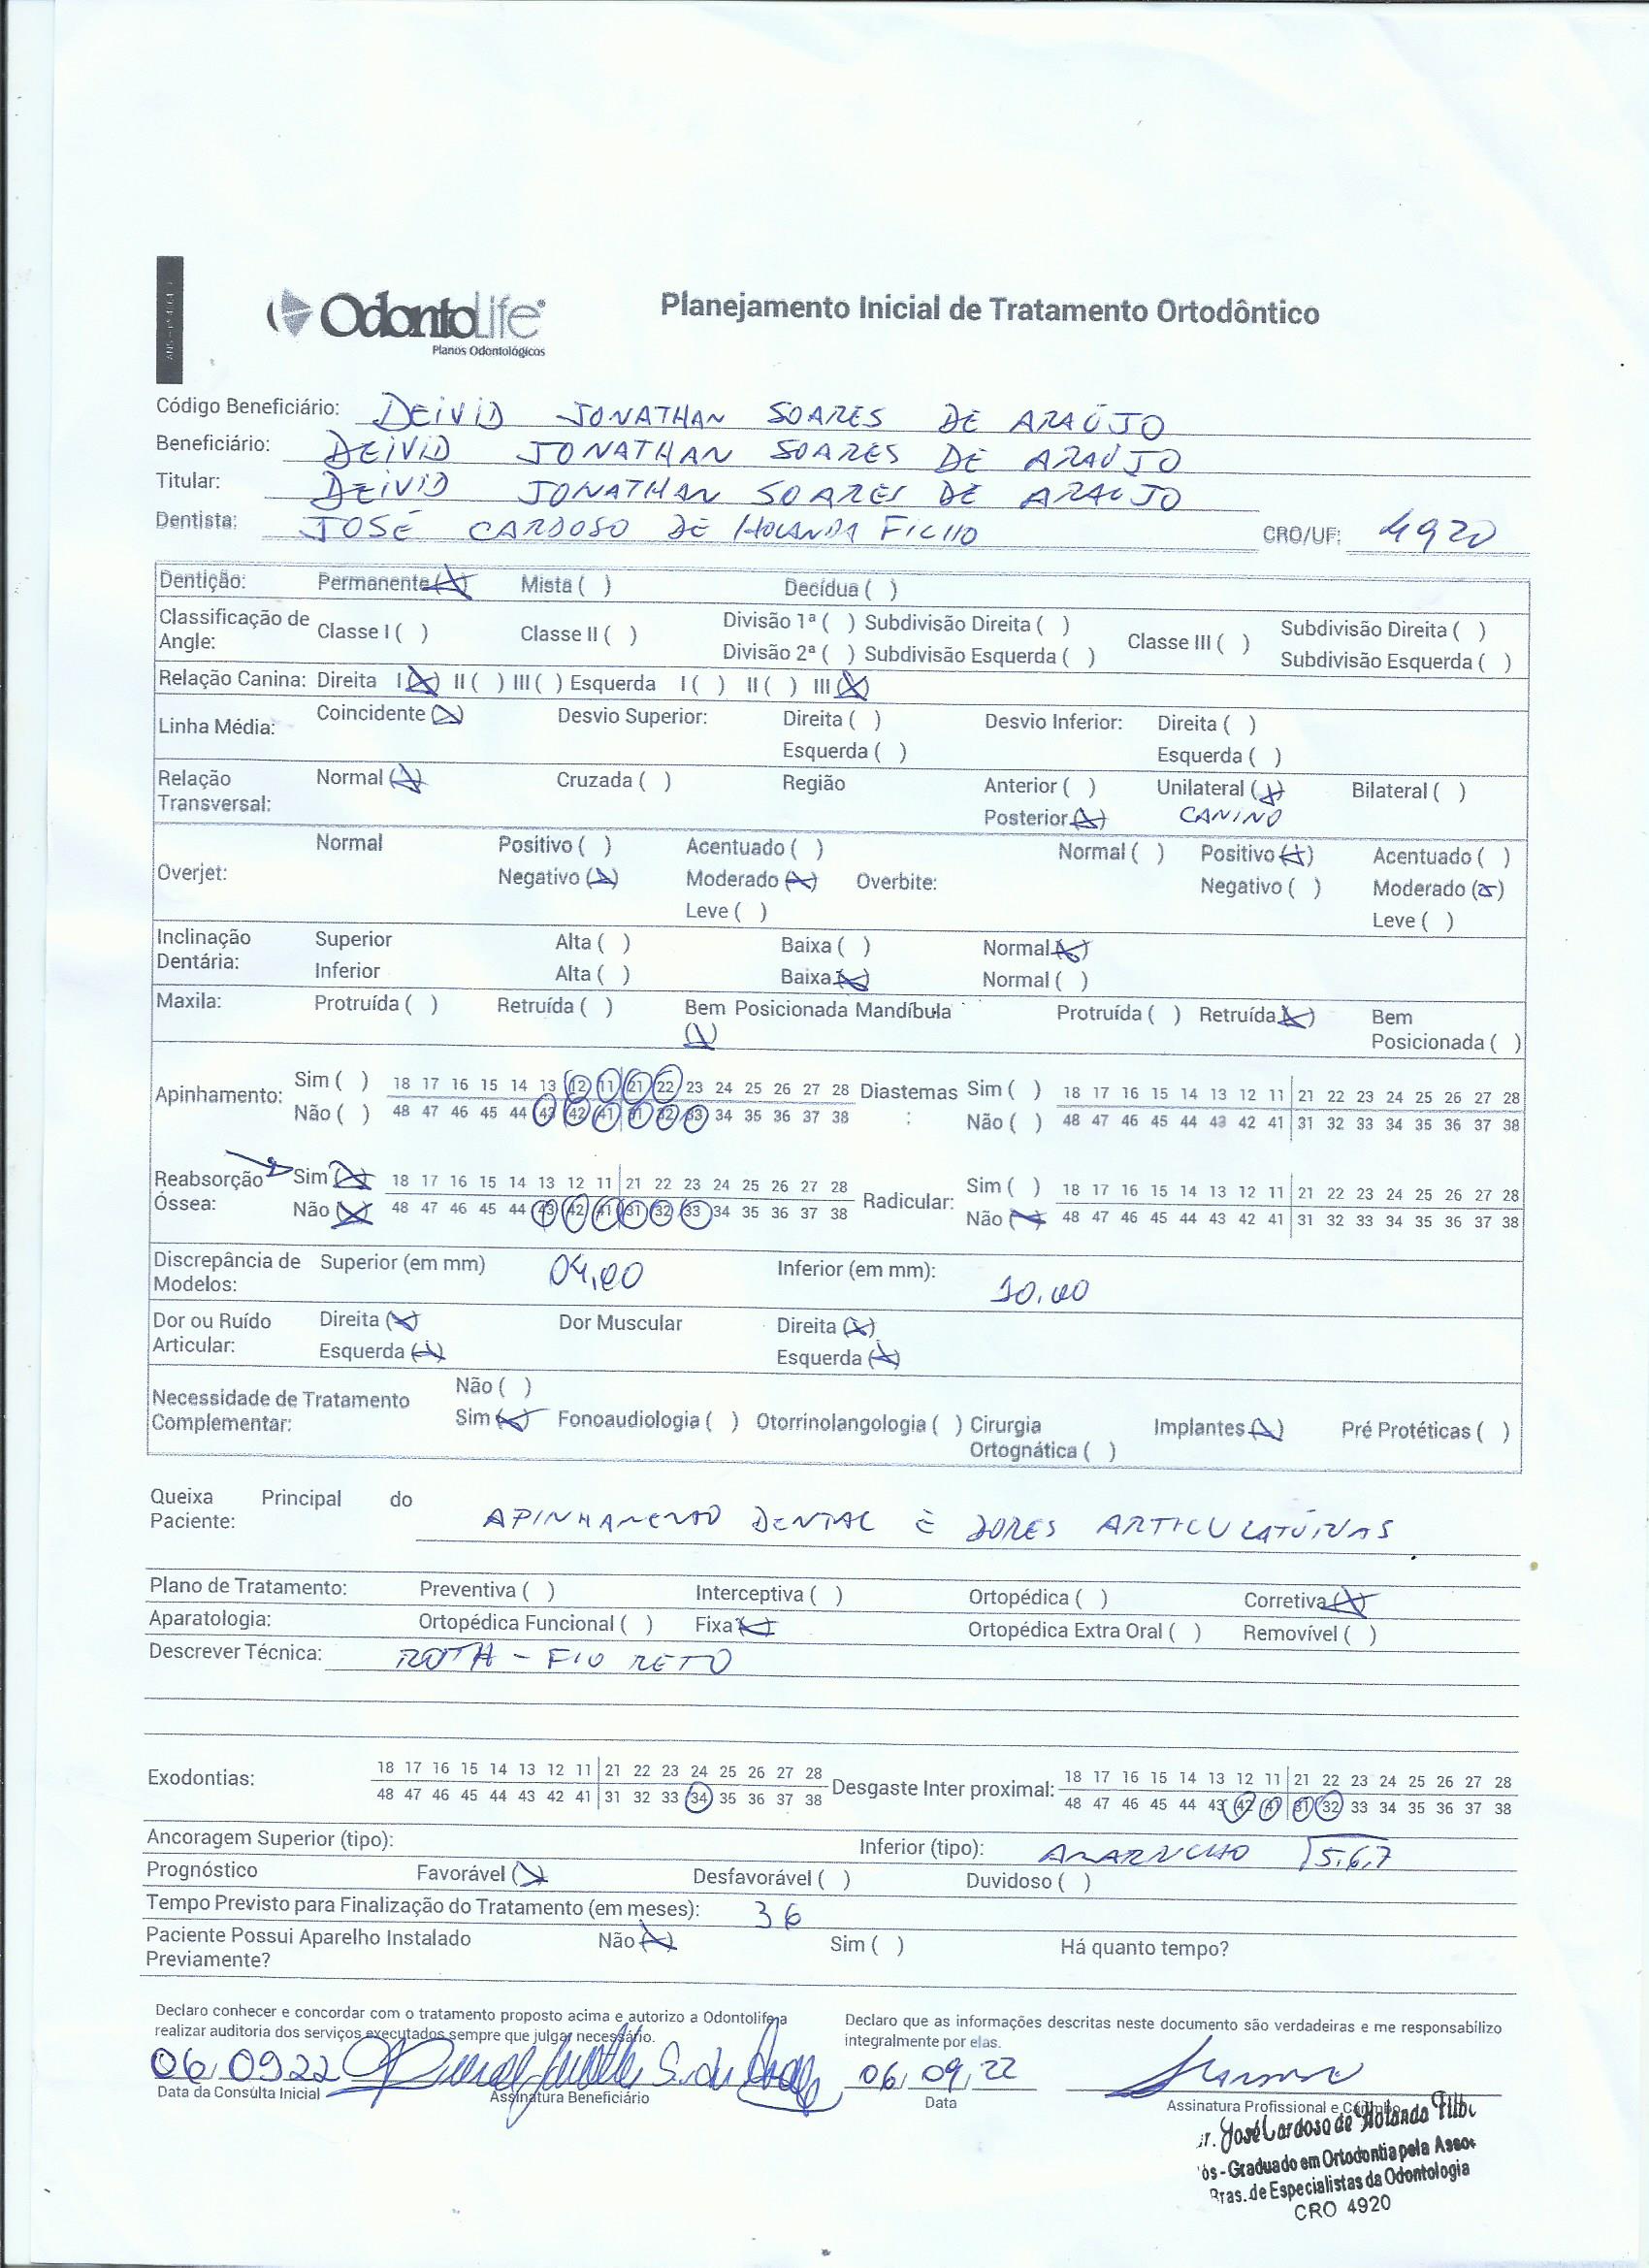 OdontoLife
Planos Odontológicos
Planejamento Inicial de Tratamento Ortodôntico
Código Beneficiário: DEIVID JONATHAN SOARES DE ARAÚJO
Beneficiário: DEIVID JONATHAN SOARES DE ARAÚJO
Titular: DEIVID JONATHAN SOARES DE ARAUJO
Dentista: JOSÉ CARDOSO DE HOLANDA FILHO CRO/UF: 4920
Dentição: Permanente (X) Mista ( ) Decídua ( )
Classificação de Angle: Classe I ( ) Classe II ( ) Divisão 1ª ( ) Subdivisão Direita ( ) Classe III ( ) Subdivisão Direita ( )
Divisão 2ª ( ) Subdivisão Esquerda ( ) Subdivisão Esquerda ( )
Relação Canina: Direita I (X) II ( ) III ( ) Esquerda I ( ) II ( ) III (X)
Linha Média: Coincidente (X) Desvio Superior: Direita ( ) Desvio Inferior: Direita ( )
Esquerda ( ) Esquerda ( )
Relação Transversal: Normal (X) Cruzada ( ) Região Anterior ( ) Unilateral (X) Bilateral ( )
Posterior (X) CANINO
Overjet: Normal Positivo ( ) Acentuado ( ) Normal ( ) Positivo (X) Acentuado ( )
Negativo (X) Moderado (X) Overbite: Negativo ( ) Moderado (X)
Leve ( ) Leve ( )
Inclinação Dentária: Superior Alta ( ) Baixa ( ) Normal (X)
Inferior Alta ( ) Baixa (X) Normal ( )
Maxila: Protruída ( ) Retruída ( ) Bem Posicionada (X) Mandíbula Protruída ( ) Retruída (X) Bem Posicionada ( )
Apinhamento: Sim ( ) 18 17 16 15 14 13 12 11 21 22 23 24 25 26 27 28 Diastemas : Sim ( ) 18 17 16 15 14 13 12 11 21 22 23 24 25 26 27 28
Não ( ) 48 47 46 45 44 43 42 41 31 32 33 34 35 36 37 38 Não ( ) 48 47 46 45 44 43 42 41 31 32 33 34 35 36 37 38
Reabsorção Óssea: Sim (X) 18 17 16 15 14 13 12 11 21 22 23 24 25 26 27 28 Radicular: Sim ( ) 18 17 16 15 14 13 12 11 21 22 23 24 25 26 27 28
Não (X) 48 47 46 45 44 43 42 41 31 32 33 34 35 36 37 38 Não (X) 48 47 46 45 44 43 42 41 31 32 33 34 35 36 37 38
Discrepância de Modelos: Superior (em mm) 04,00 Inferior (em mm): 10,00
Dor ou Ruído Articular: Direita (X) Dor Muscular Direita (X)
Esquerda (X) Esquerda (X)
Necessidade de Tratamento Complementar: Não ( )
Sim (X) Fonoaudiologia ( ) Otorrinolangologia ( ) Cirurgia Ortognática ( ) Implantes (X) Pré Protéticas ( )
Queixa Principal do Paciente: APINHAMENTO DENTAL E DORES ARTICULATÓRIAS
Plano de Tratamento: Preventiva ( ) Interceptiva ( ) Ortopédica ( ) Corretiva (X)
Aparatologia: Ortopédica Funcional ( ) Fixa (X) Ortopédica Extra Oral ( ) Removível ( )
Descrever Técnica: ROTH - FIO RETO
Exodontias: 18 17 16 15 14 13 12 11 21 22 23 24 25 26 27 28 Desgaste Inter proximal: 18 17 16 15 14 13 12 11 21 22 23 24 25 26 27 28
48 47 46 45 44 43 42 41 31 32 33 34 35 36 37 38 48 47 46 45 44 43 42 41 31 32 33 34 35 36 37 38
Ancoragem Superior (tipo): Inferior (tipo): AMARRILHO 5.6.7
Prognóstico Favorável (X) Desfavorável ( ) Duvidoso ( )
Tempo Previsto para Finalização do Tratamento (em meses): 36
Paciente Possui Aparelho Instalado Previamente? Não (X) Sim ( ) Há quanto tempo?
Declaro conhecer e concordar com o tratamento proposto acima e autorizo a Odontolife a realizar auditoria dos serviços executados sempre que julgar necessário.
Declaro que as informações descritas neste documento são verdadeiras e me responsabilizo integralmente por elas.
06 09 22 06, 09, 22
Data da Consulta Inicial Assinatura Beneficiário Data Assinatura Profissional e Carimbo
r. José Cardoso de Holanda Filho
ós-Graduado em Ortodontia pela Assoc
Bras. de Especialistas da Odontologia
CRO 4920